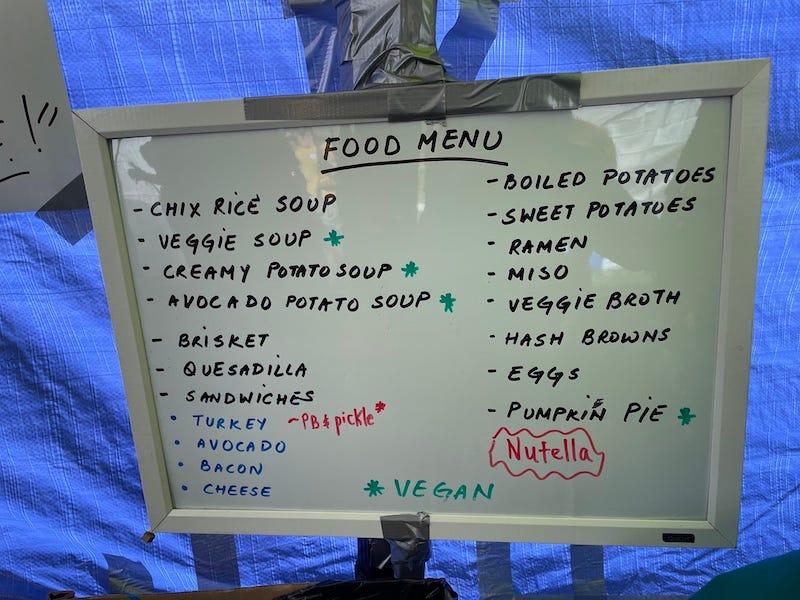 !"
FOOD MENU
- CHIX RICE SOUP
- VEGGIE SOUP *
- CREAMY POTATO SOUP *
- AVOCADO POTATO SOUP *
- BRISKET
- QUESADILLA
- SANDWICHES
• TURKEY ~PB & pickle*
• AVOCADO
• BACON
• CHEESE
- BOILED POTATOES
- SWEET POTATOES
- RAMEN
- MISO
- VEGGIE BROTH
- HASH BROWNS
- EGGS
- PUMPKIN PIE *
Nutella
* VEGAN